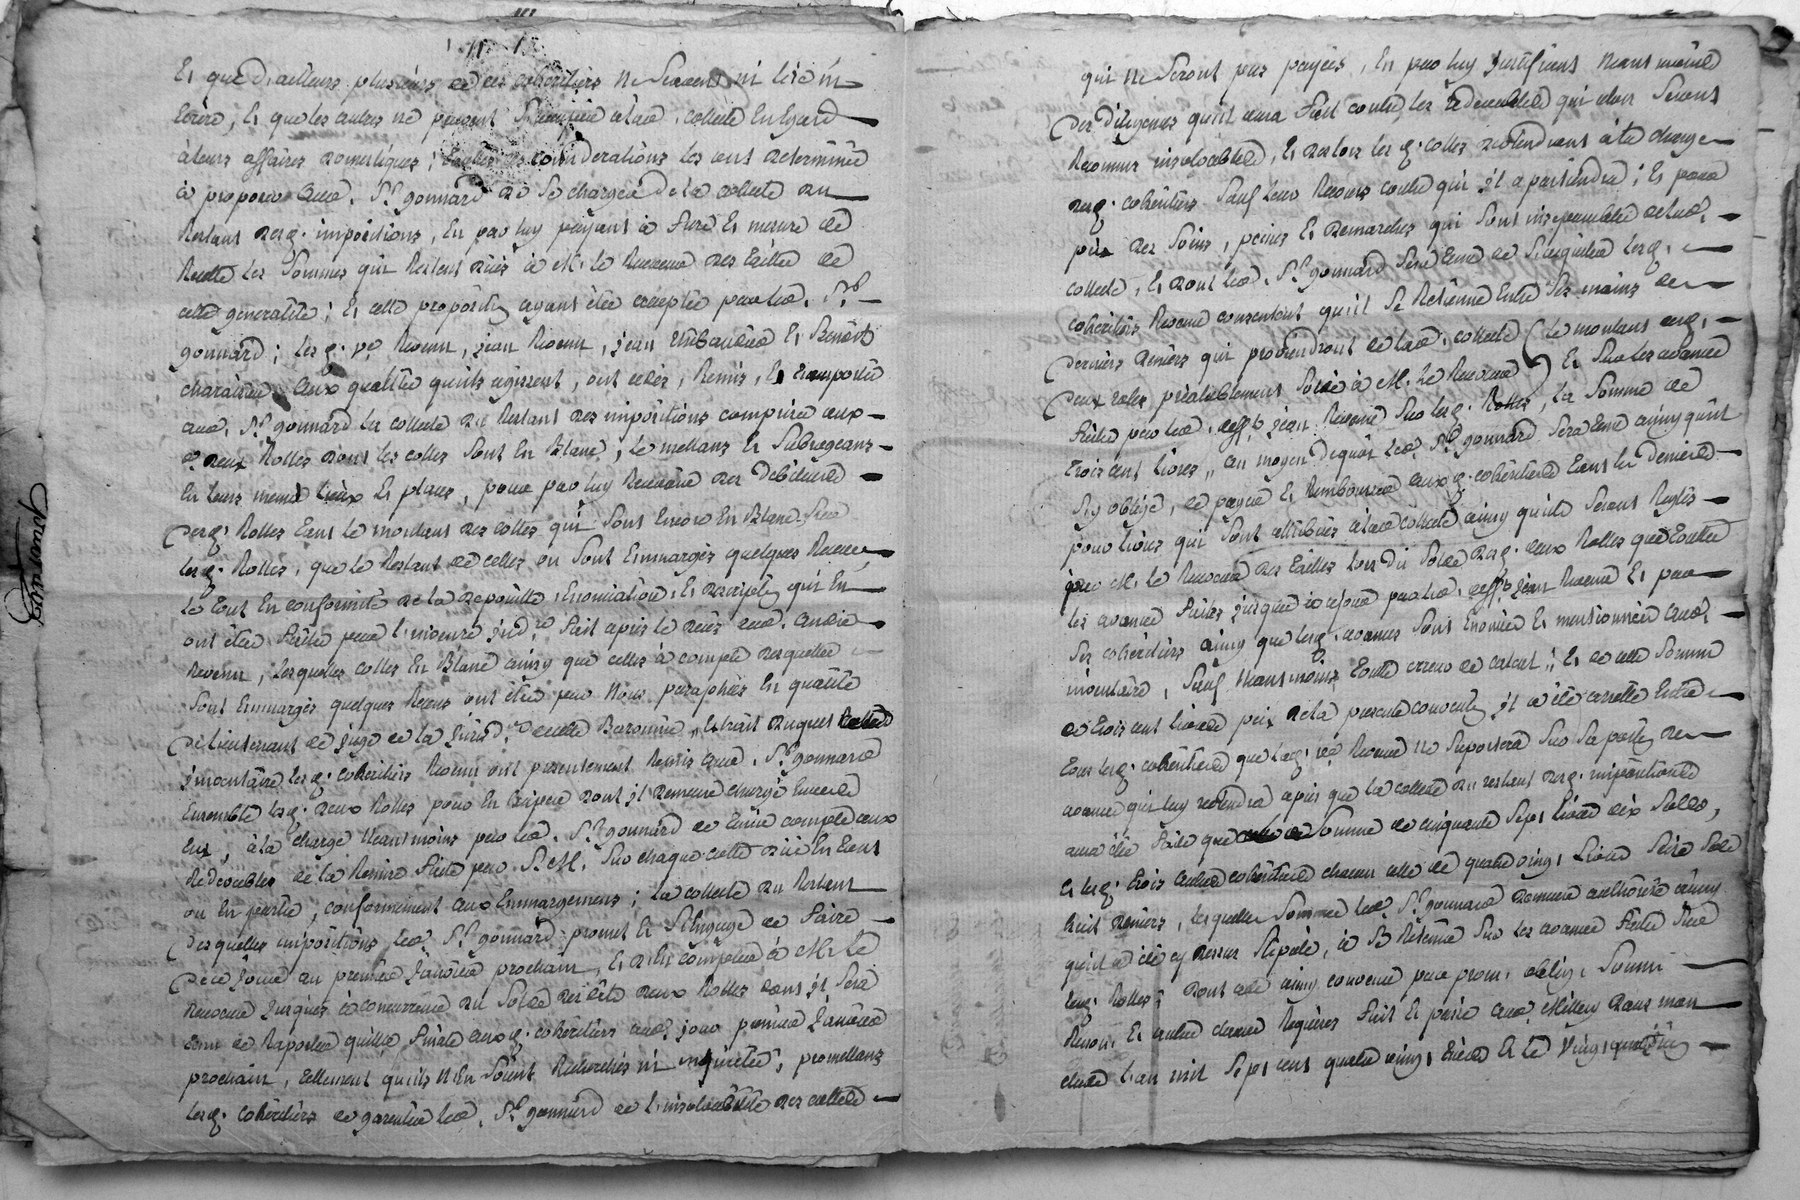 Et que d'ailleurs plusieurs de ces cohéritiers ne scavent ni lire ni
Ecrire, Et que les autres ne peuvent collecte En Egard
à leurs affaires domestiques; considerations les ont determinée
à proposer aud. Sr. gonnard de se charger de la collecte du
Restant desq. impositions, En par luy payant à fure Et mesure de
Recette les sommes qui Restent dües à M. le Receveur des tailles de
cette generalité; Et cette proposition ayant étée acceptée par led. Sr.
gonnard; lesq. Revenu, jean Revenu, jean Et Benoît
aux qualités qu'ils agissent, ont cedés, Remis, Et transportés
aud. Sr. gonnard la collecte du Restant des impositions comprise aux
deux Rolles dont les cottes sont En Blanc, le mettans Et Subrogeans
En leurs meme lieux Et places, pour par luy Recevoir des débiteurs
desq. Rolles tant le montant des cottes qui sont Encore En Blanc sur
lesq. Rolles, que le Restant de celles ou sont Emmargés quelques Receus
le tout En conformité de la depouille, Enonciation, Et description qui En
ont étée faite par l'inventre. fait après le décès
Revenu, lesquelles cottes En Blanc ainsy que celles à compte desquelles
sont Emmargés quelques Receus ont étée par Nous paraphées En qualité
de lieutenant de juge de la de cette Baronnie,
jnventaire lesq. cohéritiers Revenu ont presentement Remis aud. Sr. gonnard
Ensemble lesq. deux Rolles pour En dont jl demeure chargé Envers
Eux, à la charge Neantmoins par led. Sr. gonnard de tenir compte aux
Redevables de la Remise faite par S. M. sur chaque cotte düe En tout
ou En partie, conformement aux Emmargemens; la collecte du Restant
desquelles impositions led. Sr. gonnard promet Et s'Engage de faire
de ce jour au premier janvier prochain, Et d'En compter à M. le
Receveur jusques à concurrence du solde desdits deux Rolles dont jl sera
tenu de Raporter quittce. finale auxq. cohéritiers aud. jour premier janvier
prochain, tellement qu'ils N'En soient Recherchés ni inquiétés; promettans
lesq. cohéritiers de garentir led. Sr. gonnard de l'insolvabilité des cottes
gonnard
qui ne seront pas payées, En par luy justifiant Neantmoins
des diligences qu'il aura fait contre les redevables qui alors seront
Reconnus insolvables, Et des lors lesq. cottes reviendront à la charge
desq. cohéritiers sauf leur Recours contre qui jl apartiendra; Et pour
prix des soins, peines Et demarches qui sont inseparables de lad.
collecte, Et dont led. Sr. gonnard sera tenu de s'acquitter lesq.
cohéritiers Revenu consentent qu'il se Retienne Entre ses mains des
derniers deniers qui proviendront de lad. collecte (le montant desq.
deux roles préalablement soldé à M. le Receveur) Et sur les avances
faites par led. defft. jean Revenu sur lesq. Rolles, la somme de
trois cent livres, au moyen dequoi led. Sr. gonnard sera tenu ainsy qu'il
s'y oblige, de payer Et Rembourser auxq. cohéritiers tant les deniers
pour livres qui sont attribués à lad. collecte ainsy qu'ils seront Reglés
par M. le Receveur des tailles lors du solde desq. deux Rolles que toutes
les avances faites jusques à ce jour par led. defft. jean Revenu Et par
ses cohéritiers ainsy que lesq. avances sont Enoncées Et mentionnées aud.
inventaire, sauf Neantmoins toute erreur de calcul; Et de cette somme
de trois cent livres prix de la presente convention jl a été arretté Entre
tous lesq. cohéritiers que lad. ve. Revenu ne suportera sur sa portion des
avances qui luy reviendra après que la collecte du restant desq. impositions
aura été faite que somme de cinquante sept livres dix sols,
Et lesq. trois autres cohéritiers chacun celle de quatre vingt livres seize sols
huit deniers, lesquelles sommes led. Sr. gonnard demeure authorisé ainsy
qu'il a été cy dessus stipulé, à se Retenir sur les avances faites sur
lesq. Rolles; dont été ainsy convenu par prom. oblig. soumi
Renon. Et autres clauses Requises fait Et passé aud. Millery dans mon
étude l'an mil sept cent quatre vingt treize Et le vingt